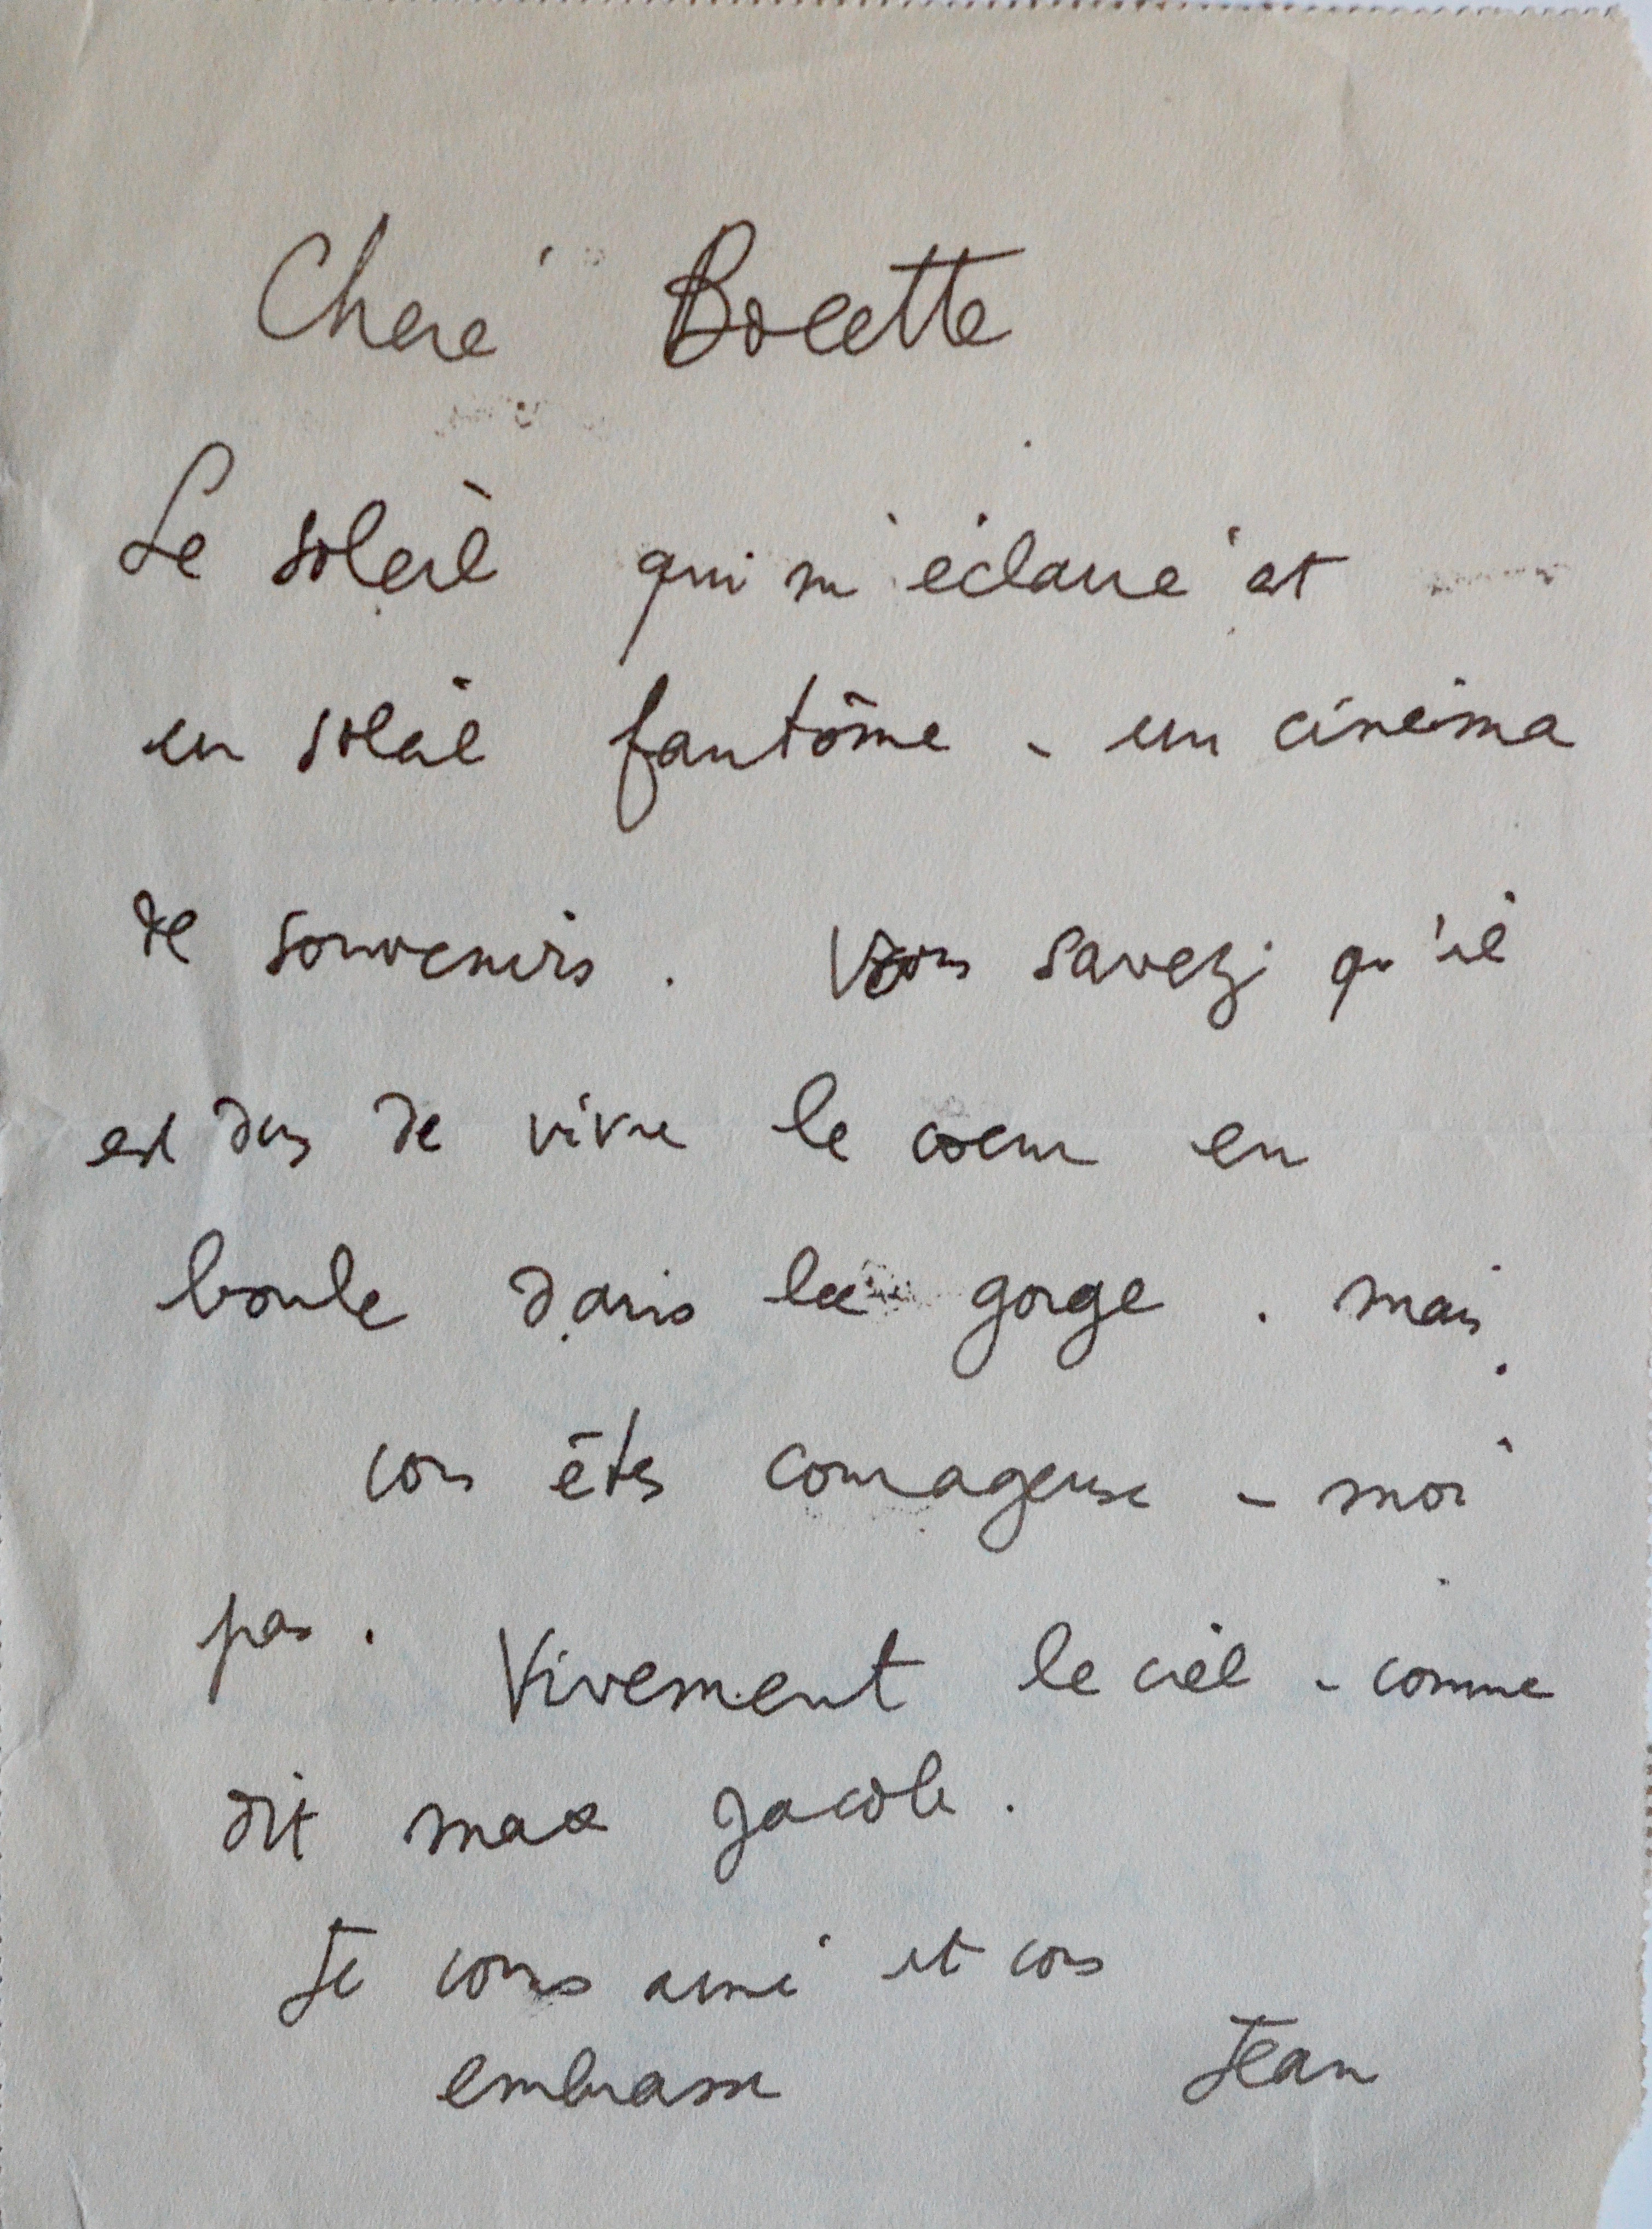 Chère Bocette
Le soleil qui m'éclaire est
un soleil fantôme - un cinéma
de souvenirs. Vous savez qu'il
est dur de vivre le coeur en
boule dans la gorge. mais
vous êtes courageuse - moi
pas. Vivement le ciel - comme
dit max Jacob.
Je vous aime et vous
embrasse Jean